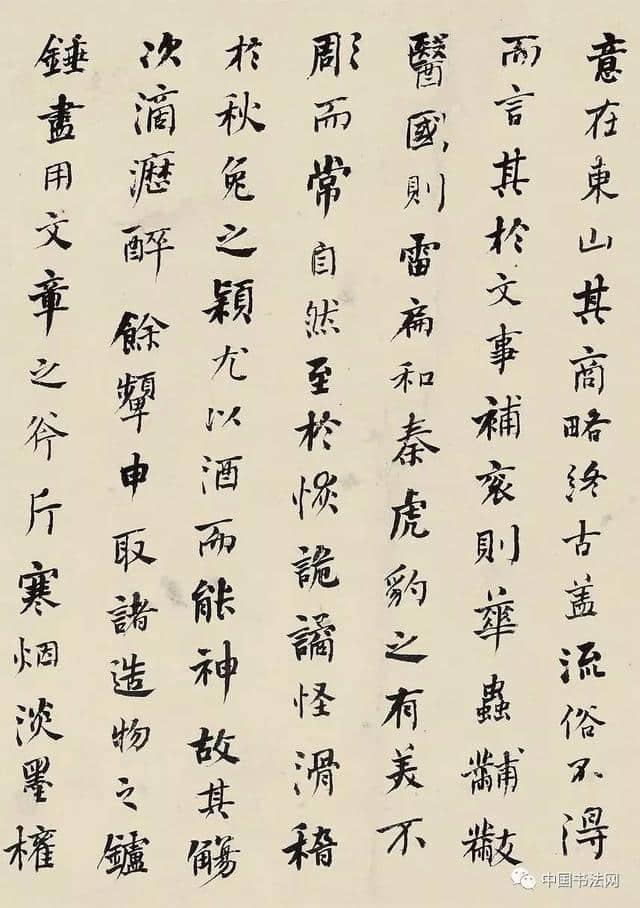 意在東山其商略終古盖流俗不淂
而言其於文事補衮則華蟲黼黻
醫國則雷扁和秦虎豹之有美不
彫而常自然至於恢詭譎怪滑稽
於秋兔之穎尤以酒而能神故其觴
次滴瀝醉餘顰申取諸造物之鑪
錘盡用文章之斧斤寒烟淡墨權
中国书法网